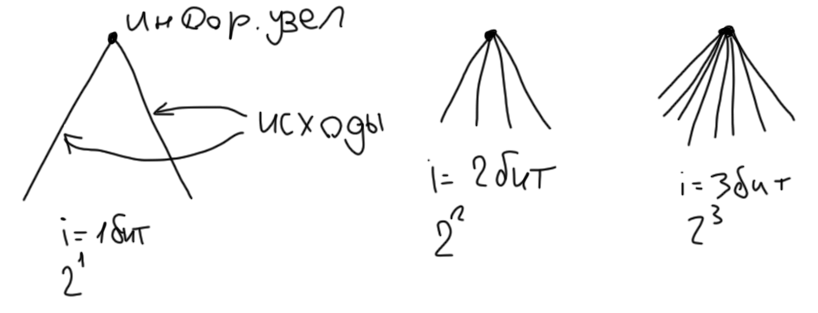 инфор. узел
исходы
i = 1 бит
2¹
i = 2 бит
2²
i = 3 бит
2³